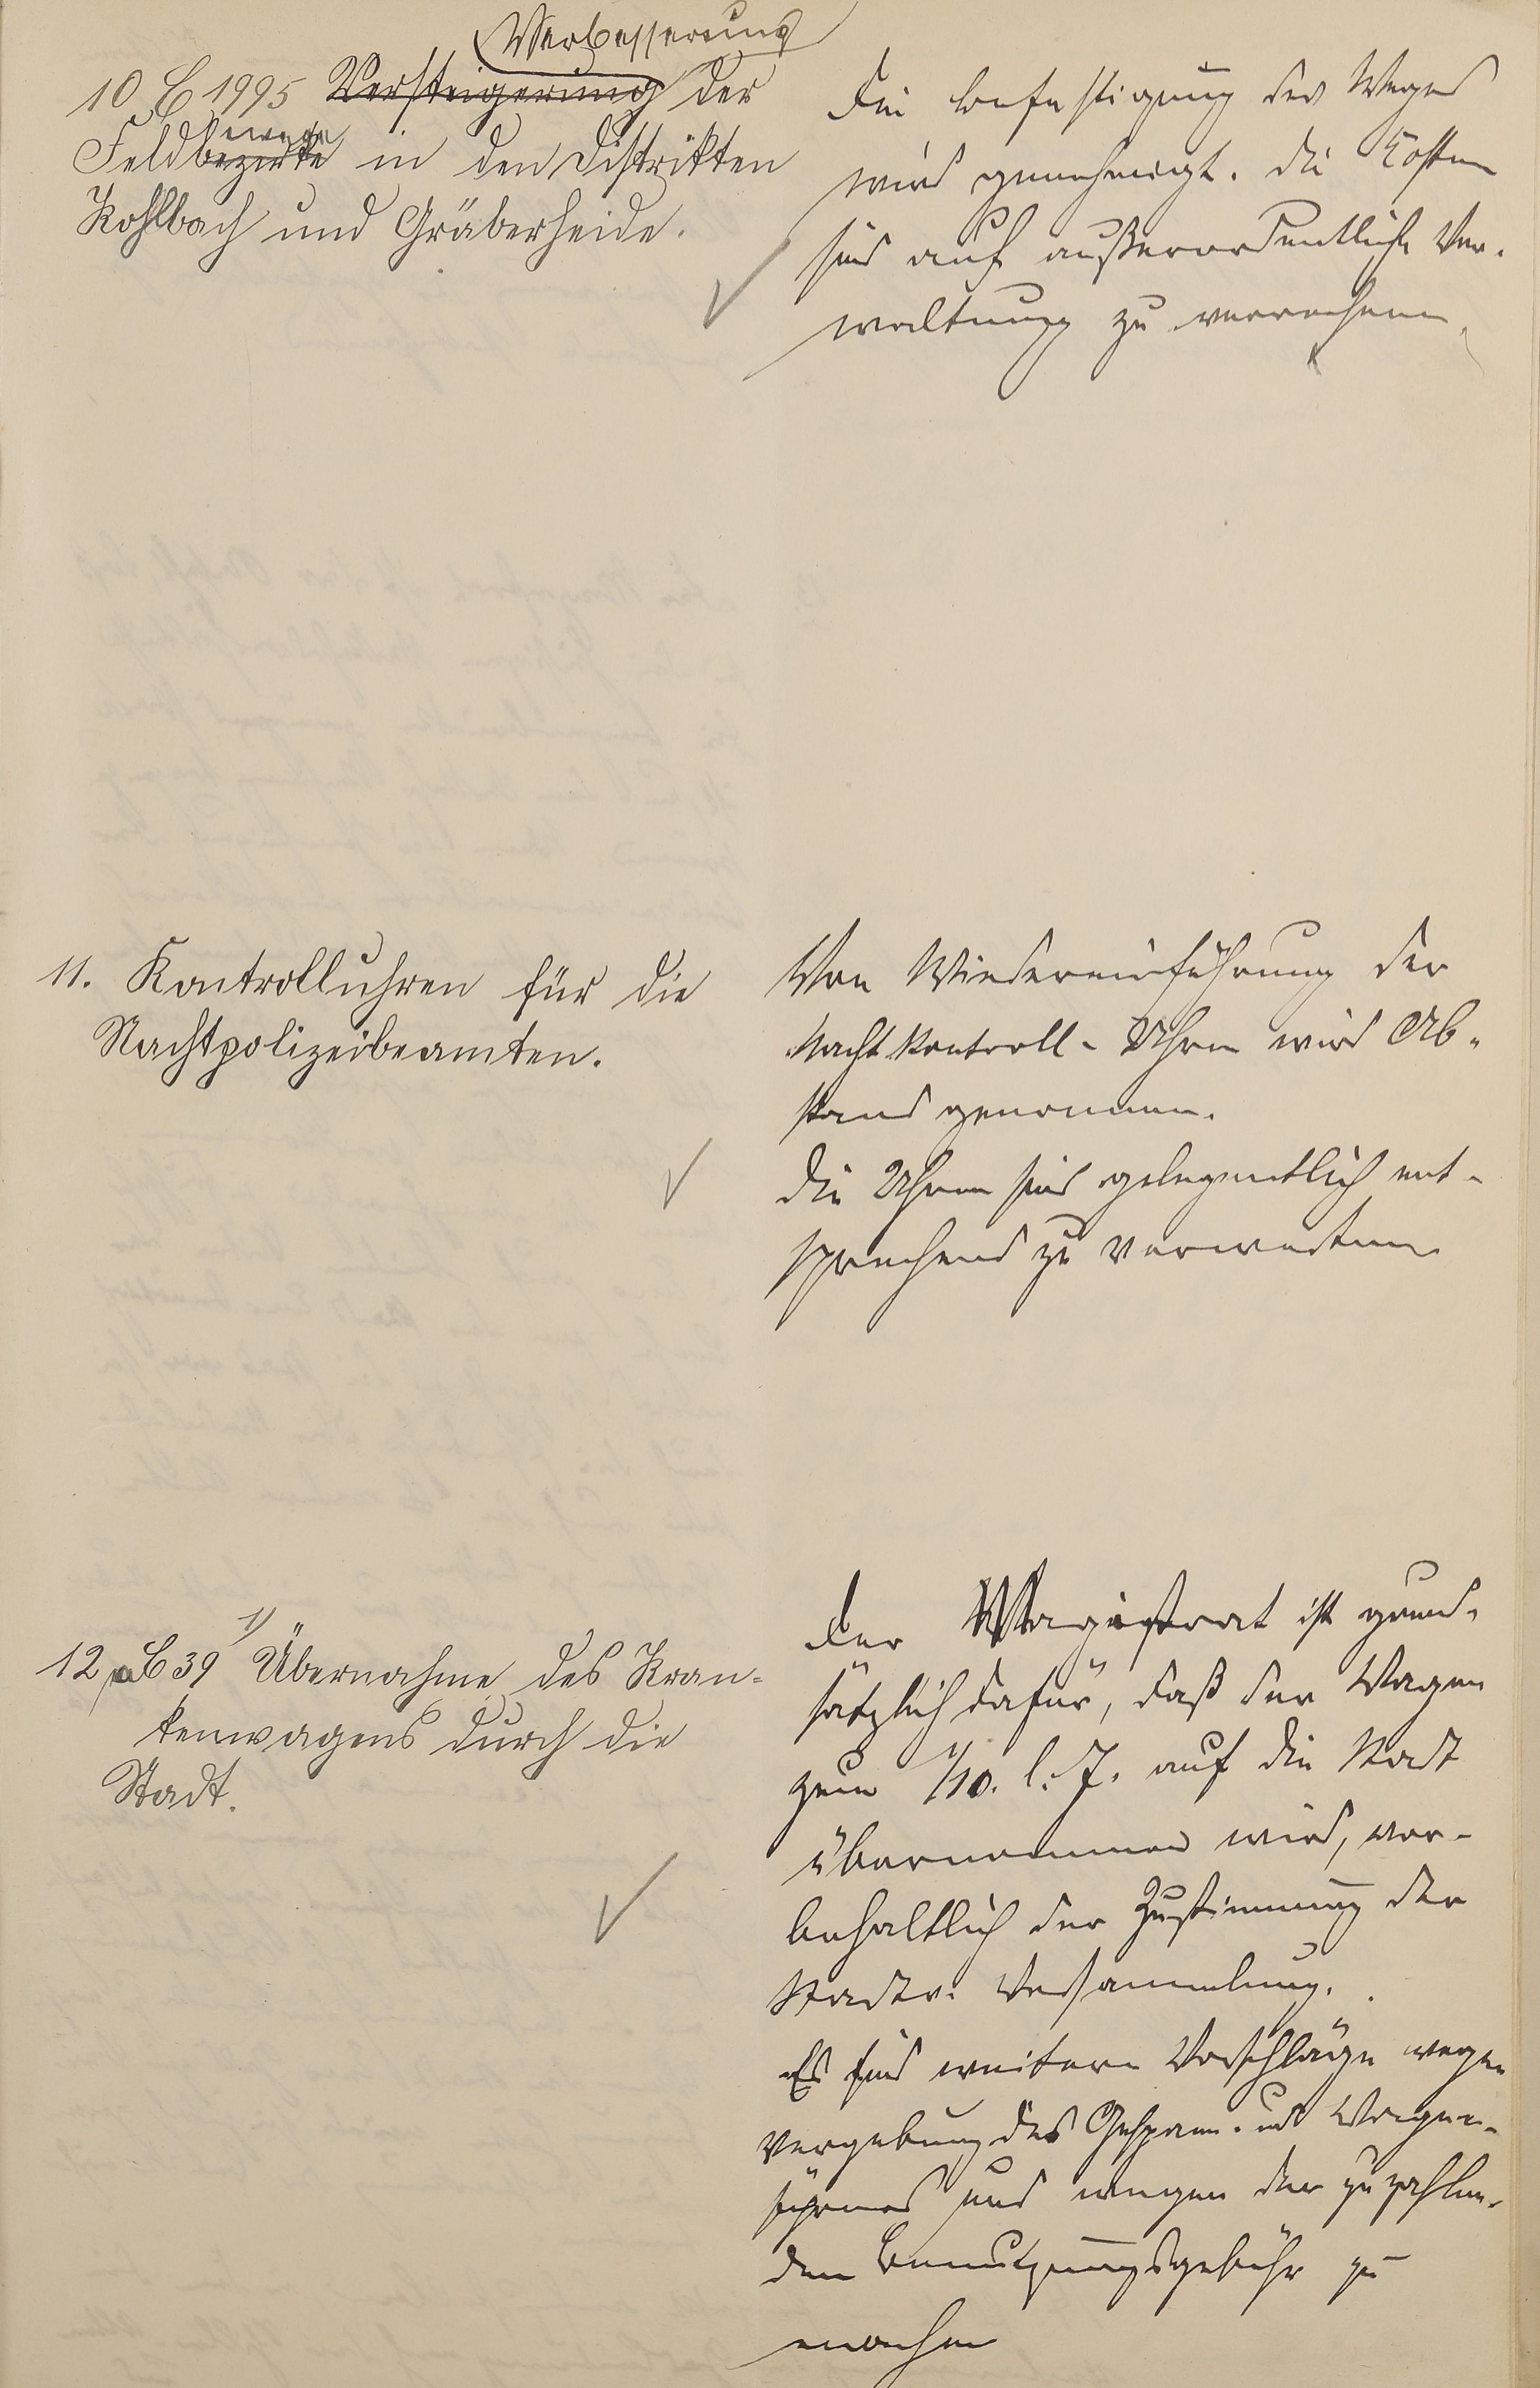 Verbesserung
10 C 1995 Versteigerung der
wege
Feldbezirke in den Distrikten
Kohlbach und Gräberheide.
Die Befestigung des Weges
wird genehmigt. Die Kosten
sind auf außerordentliche Ver-
waltung zu verrechnen.
11. Kontrolluhren für die
Nachtpolizeibeamten.
Von Wiedereinführung der
Nacht Kontroll-Uhren wird Ab-
stand genommen.
Die Uhren sind gelegentlich ent-
sprechend zu verwerten
12 C 39 1) Übernahme des Kran-
kenwagens durch die
Stadt.
Der Magistrat ist grund-
sätzlich dafür, daß der Wagen
zum 1/10. l. J. auf die Stadt
übernommen wird, vor-
behaltlich der Zustimmung der
Stadtv. Versammlung.
Es sind weitere Vorschläge wegen
Vergebung des Gespann- und Wagen-
führers und wegen der zu zahlen-
den Benutzungsgebühr zu
machen